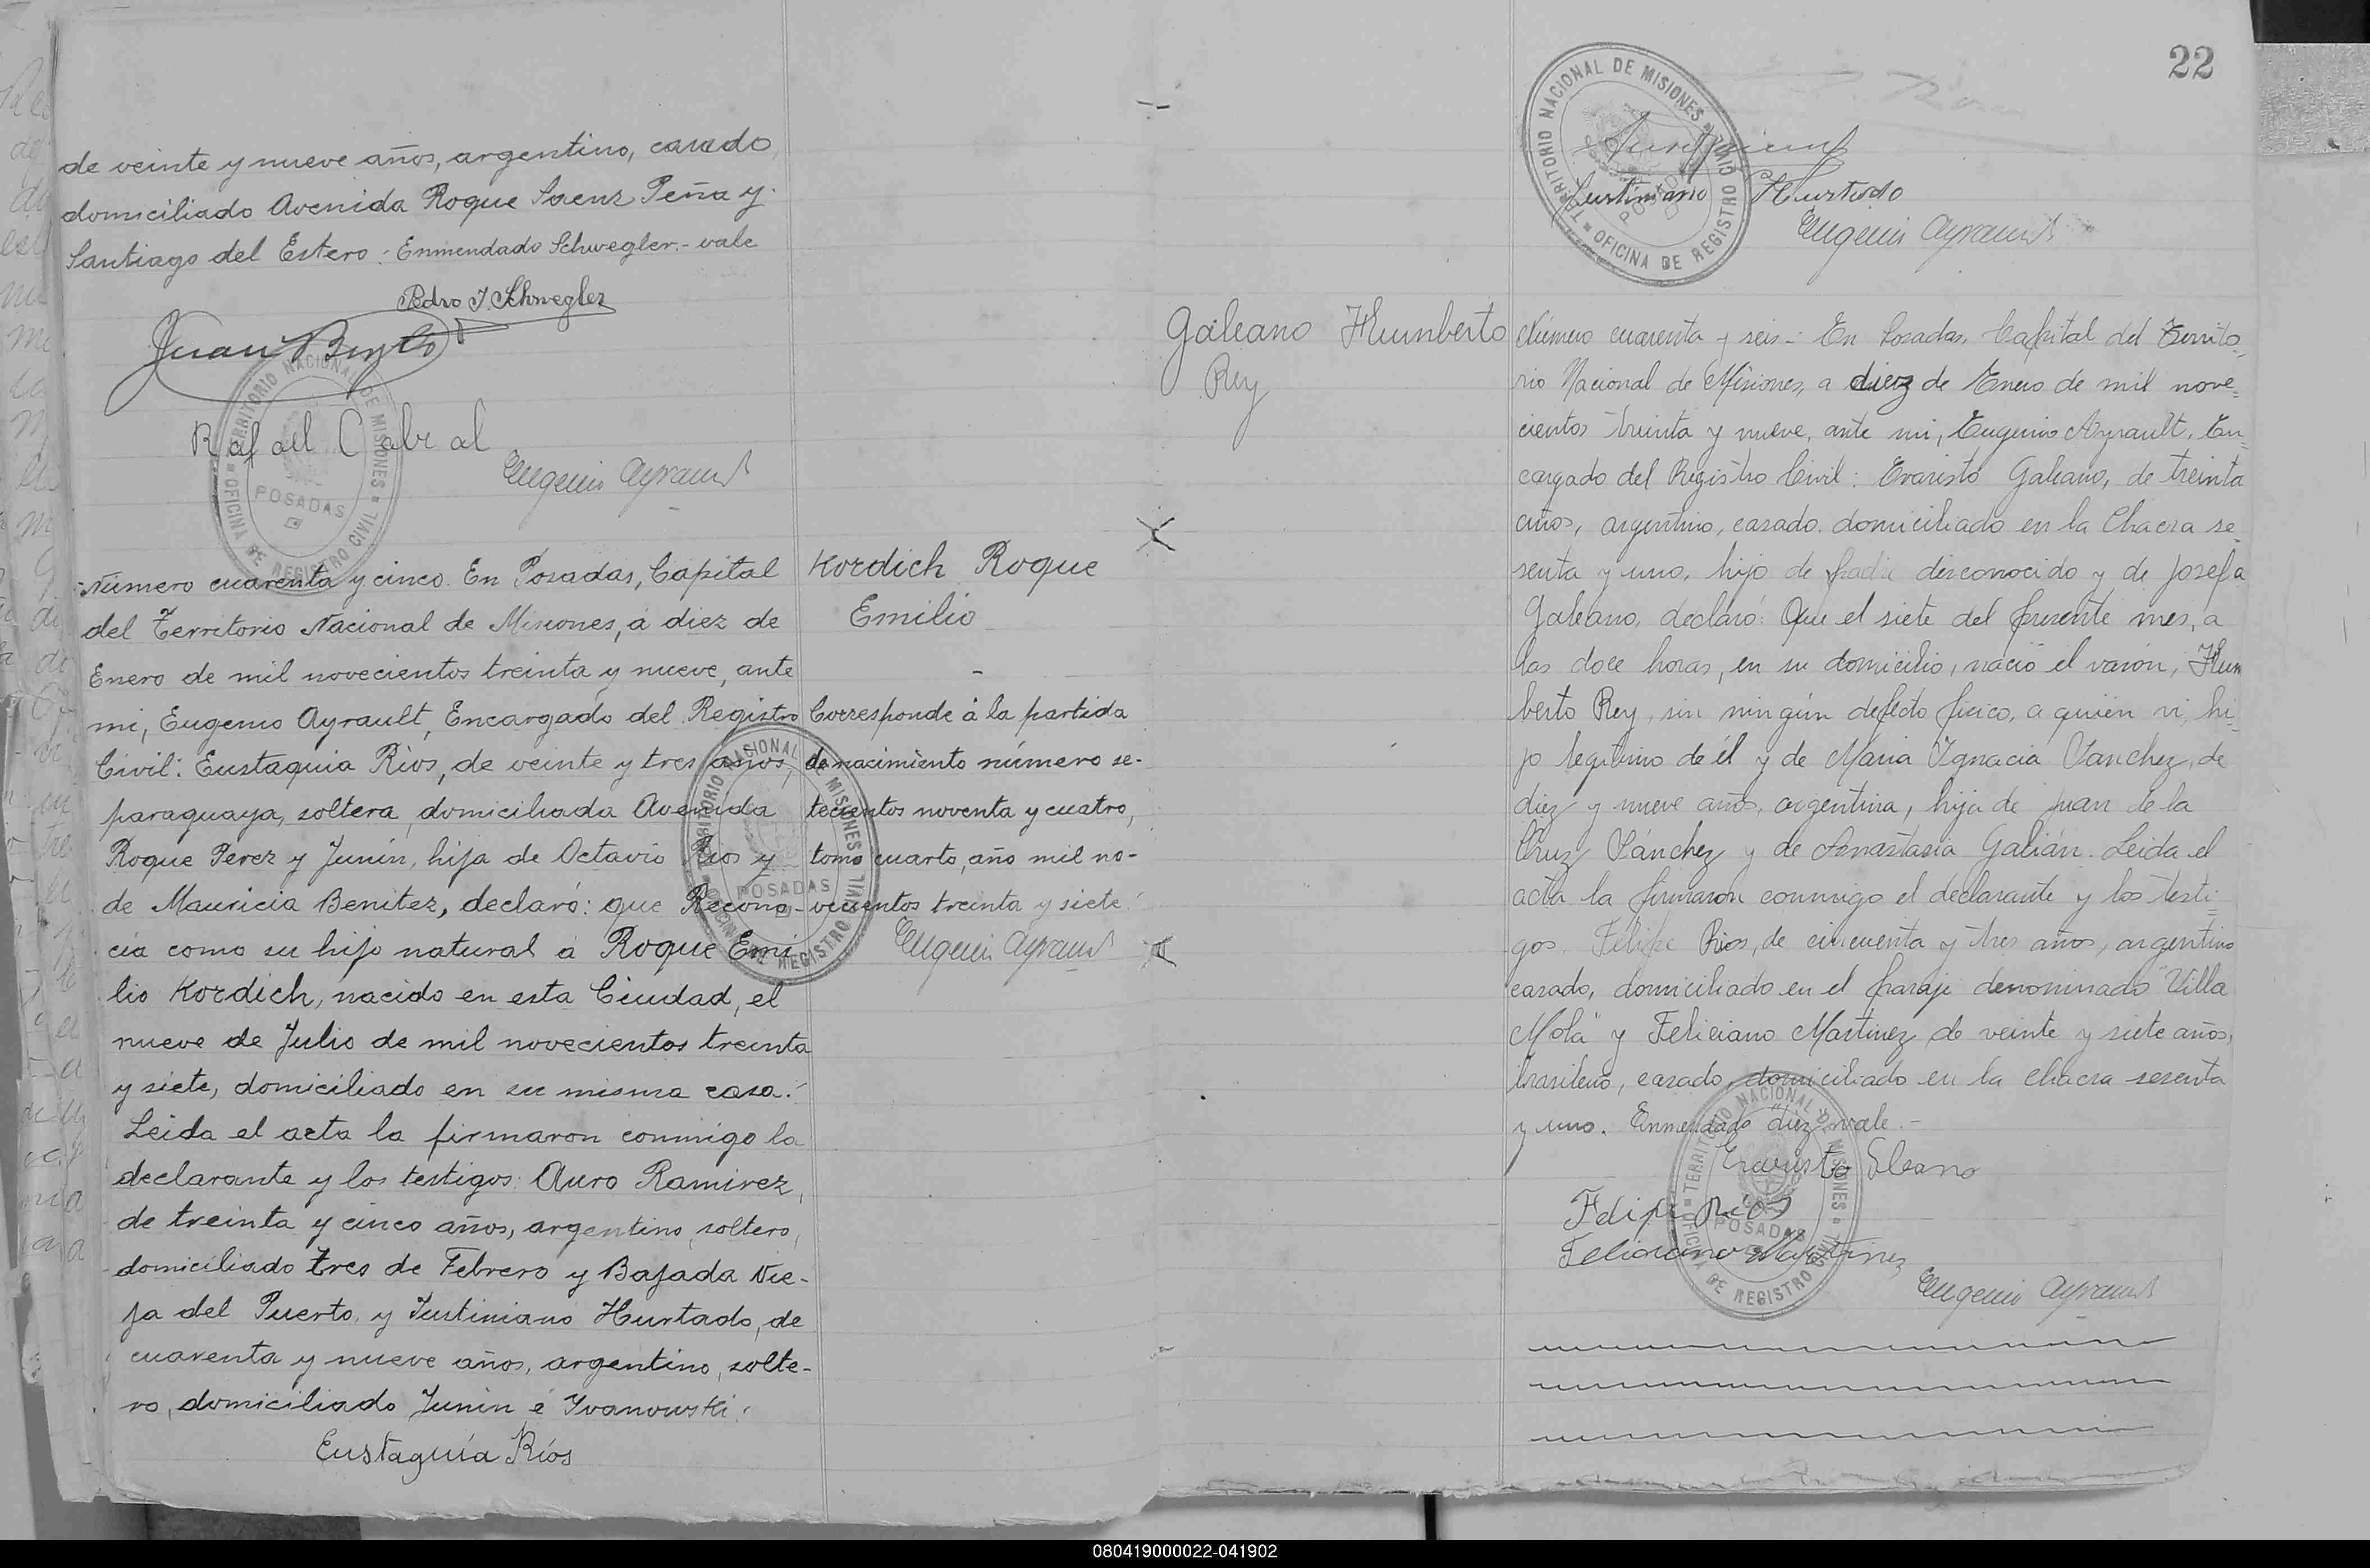 de veinte y nueve años, argentino, casado,
domiciliado Avenida Roque Saenz Peña y
Santiago del Estero: Enmendado Schwegler.- vale
Pedro J. Schwegler
Juan
Rafael Cabral
Eugenio Ayrault
TERRITORIO NACIONAL DE MISIONES
OFICINA DE REGISTRO CIVIL
POSADAS
Número cuarenta y cinco. En Posadas, Capital
del Territorio Nacional de Misiones, a diez de
Enero de mil novecientos treinta y nueve, ante
mi, Eugenio Ayrault, Encargado del Registro
Civil: Eustaquia Rios, de veinte y tres años,
paraguaya, soltera, domiciliada Avenida
Roque Perez y Junín, hija de Octavio Rios y
de Mauricia Benitez, declaró: que Recono-
cía como su hijo natural a Roque Emi
lio Kordich, nacido en esta Ciudad, el
nueve de Julio de mil novecientos treinta
y siete, domiciliado en su misma casa.
Leida el acta la firmaron conmigo la
declarante y los testigos: Auro Ramirez,
de treinta y cinco años, argentino, soltero,
domiciliado tres de Febrero y Bajada Vie-
ja del Puerto, y Justiniano Hurtado, de
cuarenta y nueve años, argentino, solte-
ro, domiciliado Junín é Yvanowski.
Eustaquía Ríos
Kordich Roque
Emilio
Corresponde à la partida
de nacimiento número se-
tecientos noventa y cuatro,
tomo cuarto, año mil no-
vecientos treinta y siete.
Eugenio Ayrault
TERRITORIO NACIONAL DE MISIONES
OFICINA DE REGISTRO CIVIL
POSADAS
22
TERRITORIO NACIONAL DE MISIONES
OFICINA DE REGISTRO CIVIL
POSADAS
Justiniano Hurtado
Eugenio Ayrault
Galeano Humberto
Rey
Número cuarenta y seis.- En Posadas, Capital del Territo-
rio Nacional de Misiones, a diez de Enero de mil nove-
cientos treinta y nueve, ante mi, Eugenio Ayrault, En-
cargado del Registro Civil: Evaristo Galeano, de treinta
años, argentino, casado, domiciliado en la Chacra se-
senta y uno, hijo de padre desconocido y de Josefa
Galeano, declaró: Que el siete del presente mes, a
las doce horas, en su domicilio, nació el varón, Hum
berto Rey, sin ningún defecto fisico, a quién vi, hi-
jo legitimo de él y de Maria Ygnacia Sanchez, de
diez y nueve años, argentina, hija de Juan de la
Cruz Sánchez y de Anastasia Galián. Leida el
acta la firmaron conmigo el declarante y los testi-
gos. Felipe Rios, de cincuenta y tres años, argentino
casado, domiciliado en el paraje denominado "Villa
Mola" y Feliciano Martinez, de veinte y siete años,
brasileño, casado, domiciliado en la chacra sesenta
y uno. Enmendado "diez" vale.-
Evaristo Galeano
Felipe Rios
Feliciano Martinez
Eugenio Ayrault
TERRITORIO NACIONAL DE MISIONES
OFICINA DE REGISTRO CIVIL
POSADAS
080419000022-041902